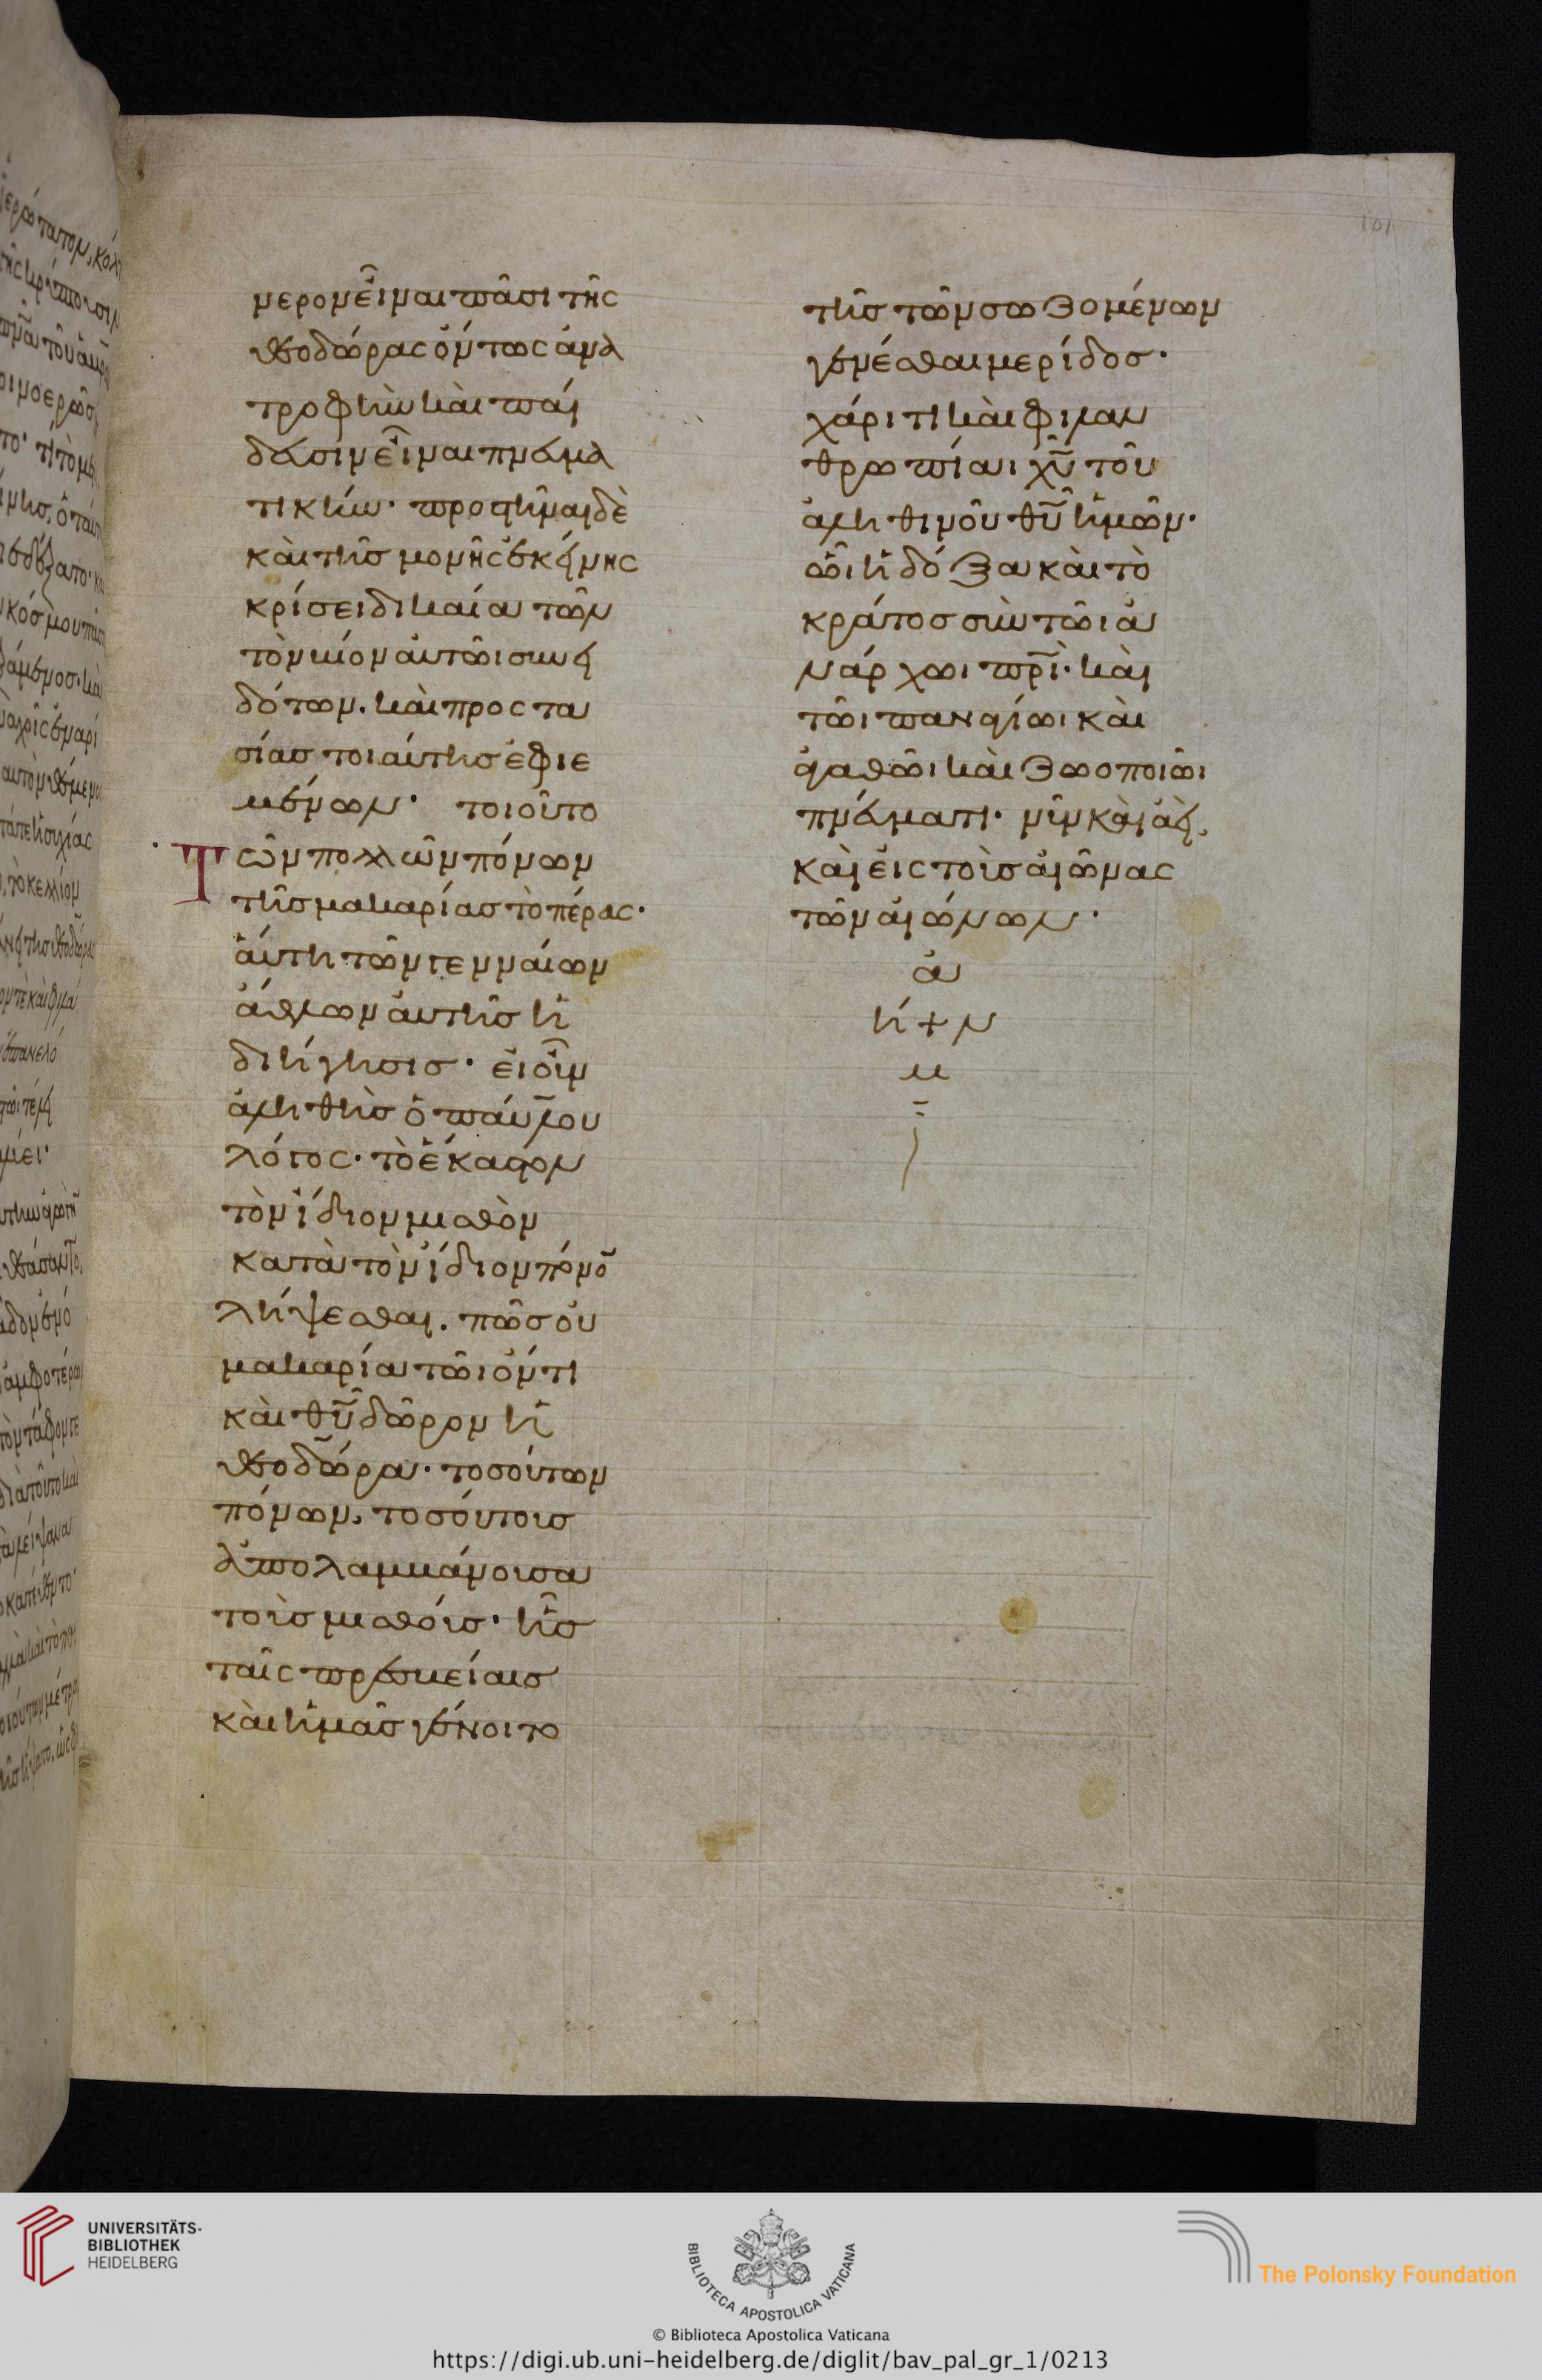 νερον εἶναι πᾶσι τῆς
θεοδώρας ὄντως ἀνα
τροφὴν καὶ παί
δευσιν εἶναι πνευμα
τικήν· προστῆναι δὲ
καὶ τῆς μονῆς ἐκείνης
κρίσει δικαία τῶν
τὸν βίον αὐτῶι συνει
δότων. καὶ προστα
σίας τοιαύτης ἐφιε
μένων· τοιοῦτο
Τῶν πολλῶν πόνων
τῆς μακαρίας τὸ πέρας·
αὕτη τῶν γενναίων
ἄθλων αὐτῆς ἡ
διήγησις· εἰ οὖν
ἀληθὴς ὁ παύλου
λόγος· τὸ ἕκαστον
τὸν ἴδιον μισθὸν
κατὰ τὸν ἴδιον πόνο̄
λήψεσθαι. πῶς οὐ
μακαρία τῶι ὄντι
καὶ θ̅υ̅ δῶρον ἡ
θεοδώρα· τοσούτων
πόνων, τοσούτους
ἀπολαμβάνουσα
τοὺς μισθούς· ἧς
ταῖς πρεσβείαις
καὶ ἡμᾶς γένοιτο
τῆς τῶν σωζομένων
γενέσθαι μερίδος·
χάριτι καὶ φιλαν
θρωπία χ̅υ̅ τοῦ
ἀληθινοῦ θ̅υ̅ ἡμῶν·
ὧι ἡ δόξα καὶ τὸ
κράτος σὺν τῶι ἀ
νάρχωι π̅ρ̅ι̅· καὶ
τῶι παναγίωι καὶ
ἀγαθῶι καὶ ζωοποιῶι
πνεύματι· νῦν καὶ ἀεί.
καὶ εἰς τοὺς αἰῶνας
τῶν αἰώνων·
ἀ
ή + ν
μ
UNIVERSITÄTS-
BIBLIOTHEK
HEIDELBERG
BIBLIOTECA APOSTOLICA VATICANA
The Polonsky Foundation
© Biblioteca Apostolica Vaticana
https://digi.ub.uni-heidelberg.de/diglit/bav_pal_gr_1/0213